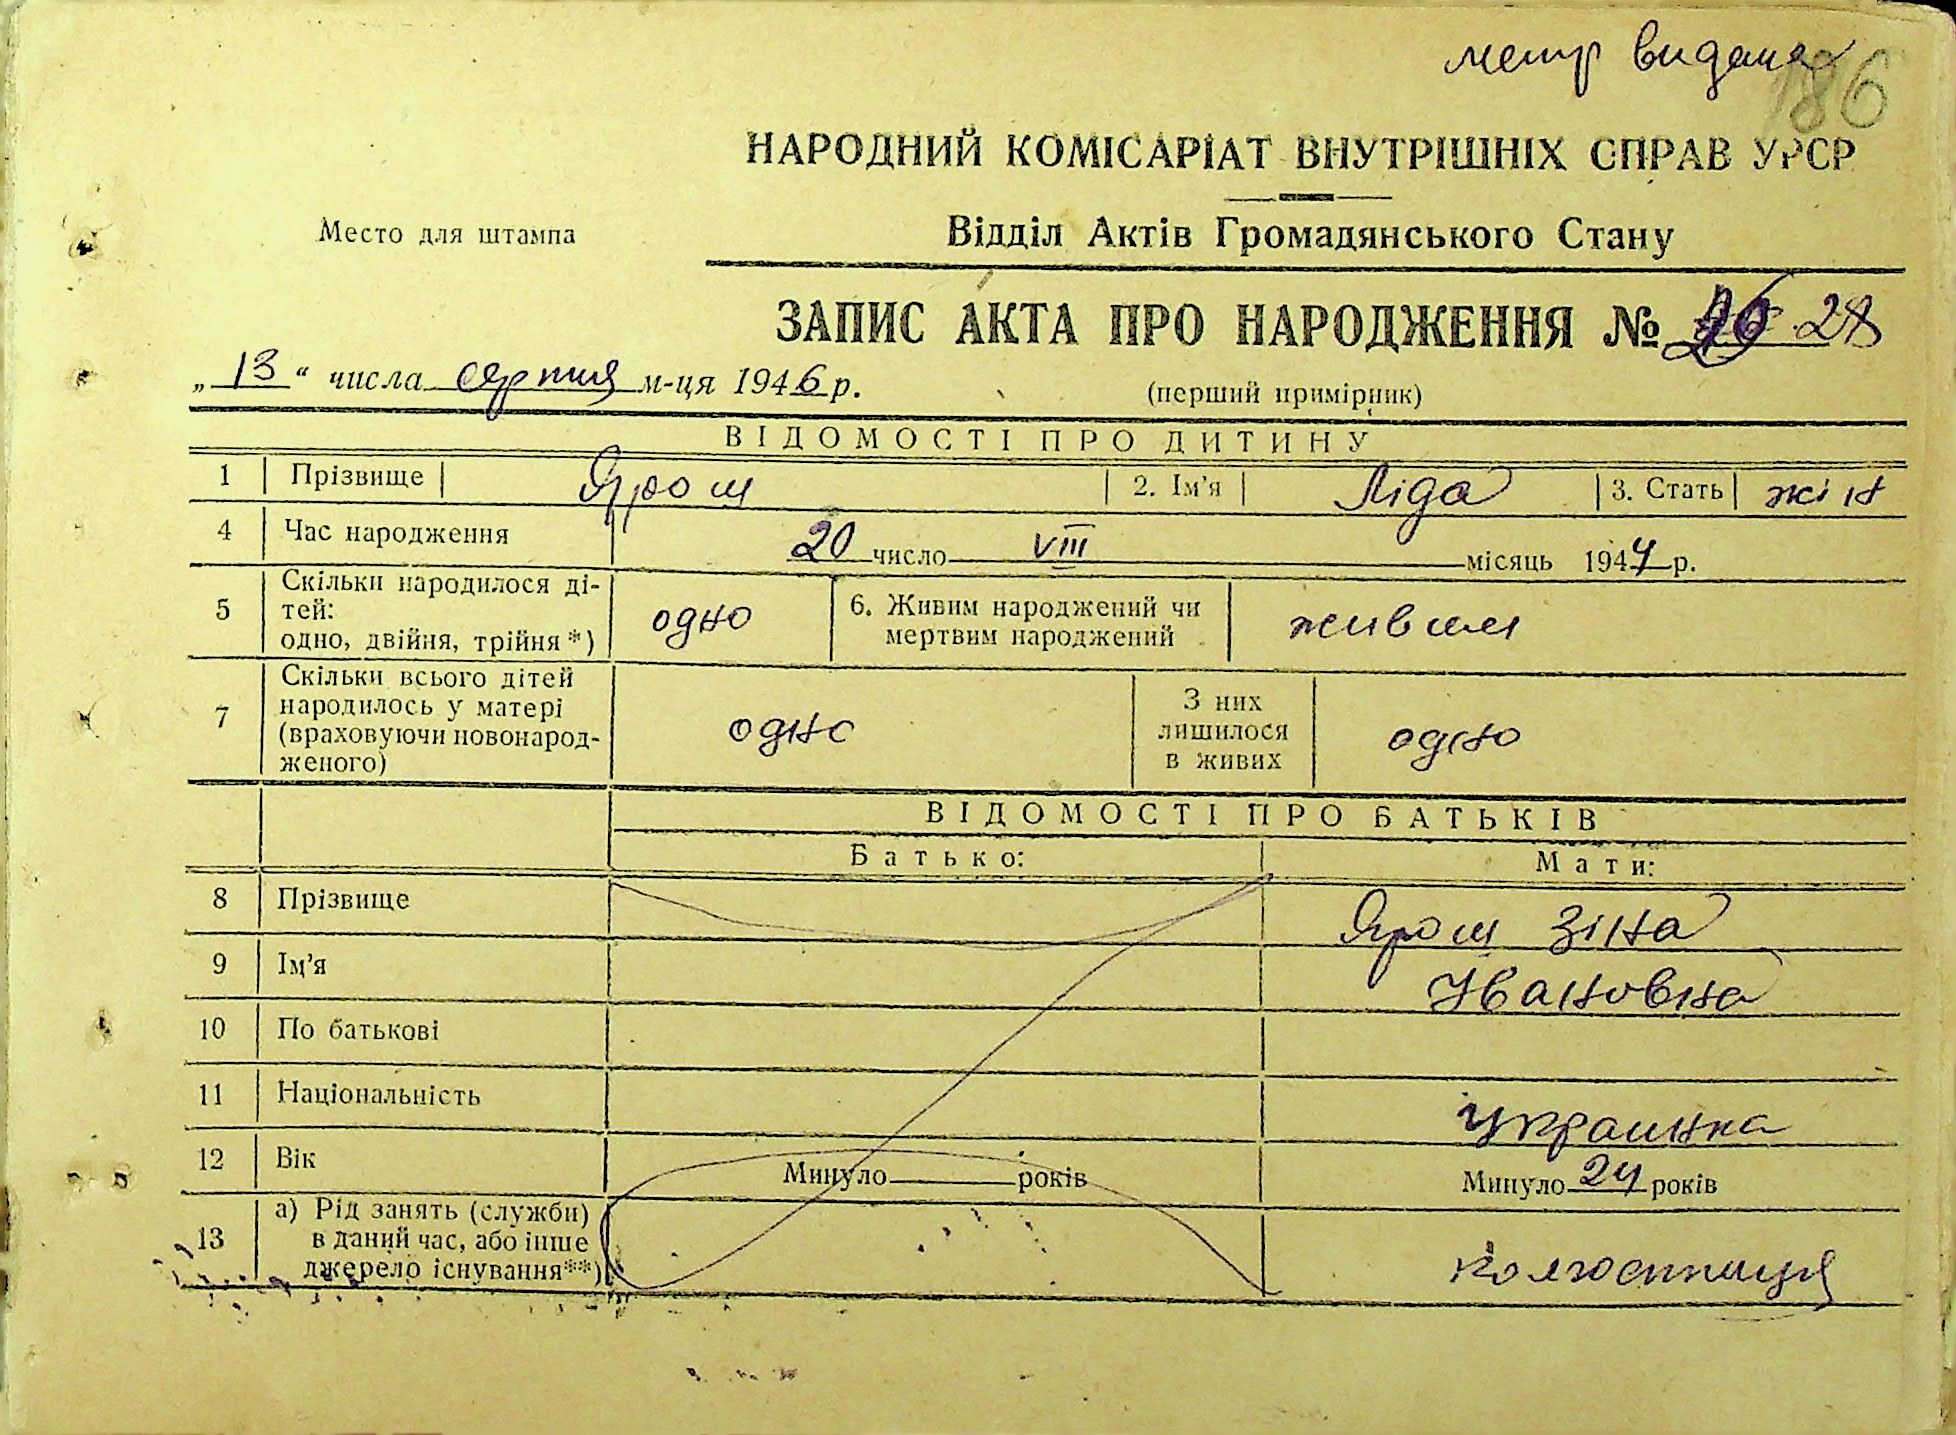 метр видана
186
НАРОДНИЙ КОМІСАРІАТ ВНУТРІШНІХ СПРАВ УРСР
Место для штампа
Відділ Актів Громадянського Стану
ЗАПИС АКТА ПРО НАРОДЖЕННЯ № 28
„13“ числа серпня м-ця 1946 р.
(перший примірник)
ВІДОМОСТІ ПРО ДИТИНУ
1 Прізвище Ярош 2. Ім'я Ліда 3. Стать жін
4 Час народження 20 число VIII місяць 1944 р.
5 Скільки народилося ді-
тей:
одно, двійня, трійня*) одно
6. Живим народжений чи
мертвим народжений живим
7 Скільки всього дітей
народилось у матері
(враховуючи новонарод-
женого) одно
З них
лишилося
в живих одно
ВІДОМОСТІ ПРО БАТЬКІВ
Батько: Мати:
8 Прізвище Ярош Зіна
9 Ім'я Івановна
10 По батькові
11 Національність украинка
12 Вік Минуло років Минуло 24 років
13 а) Рід занять (служби)
в даний час, або інше
джерело існування**) колгоспниця